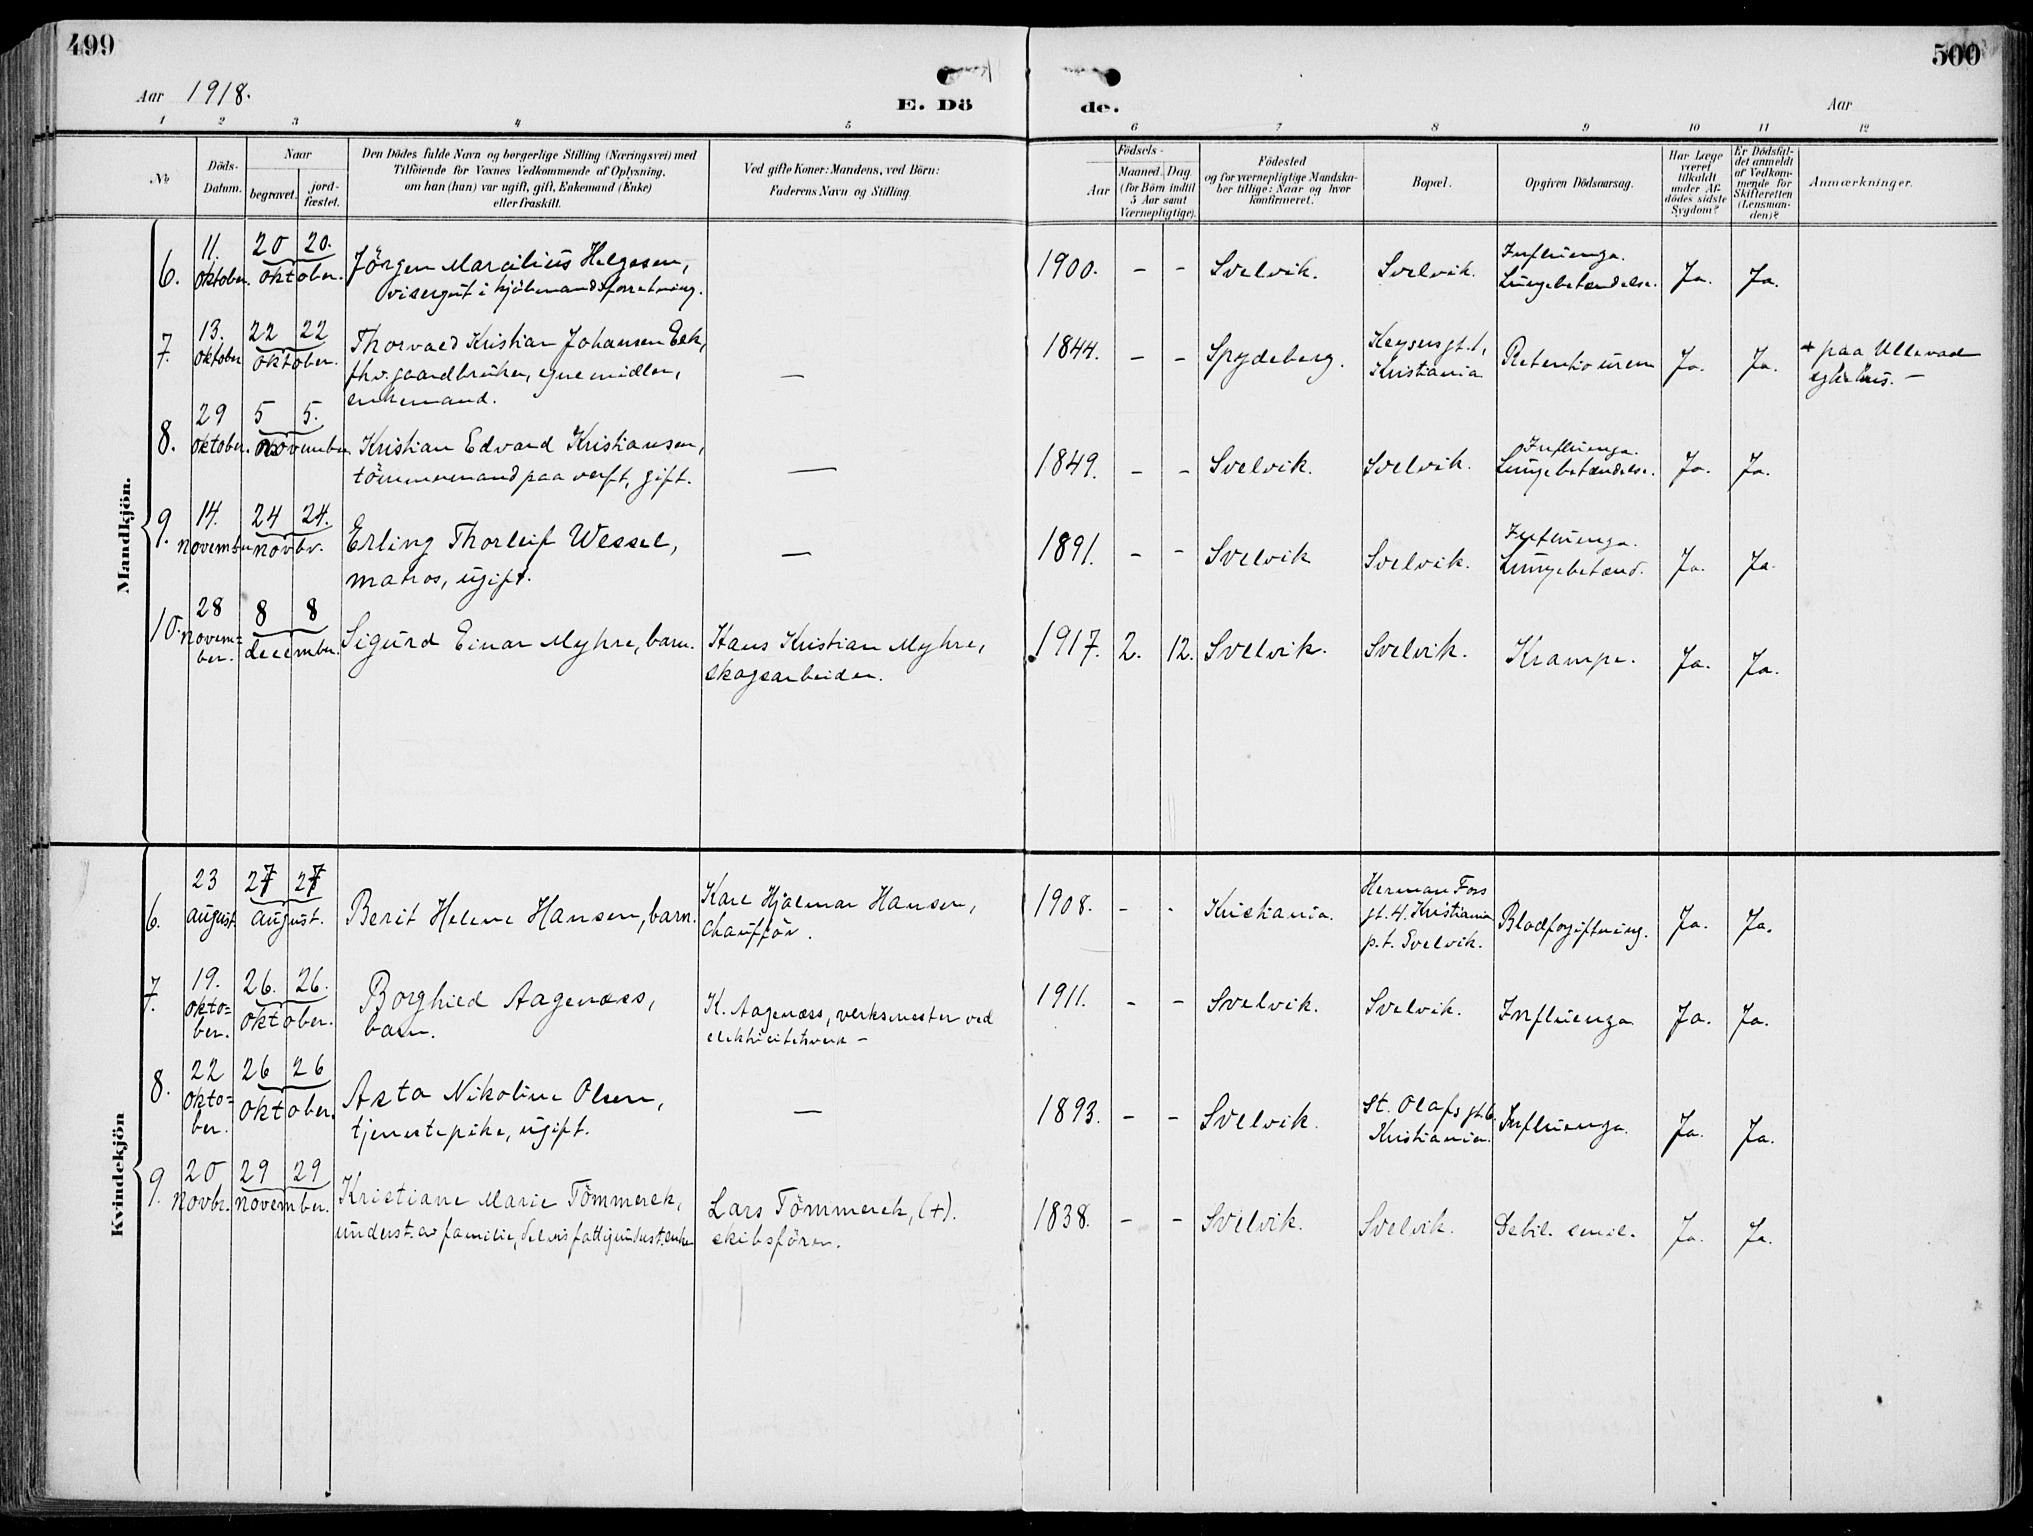 499
500
Aar 1918.
E. Dö
de.
Aar
1 2 3 4 5 6 7 8 9 10 11 12
No
Döds-
Datum.
Naar
begravet.
jord-
fæstet.
Den Dödes fulde Navn og borgerlige Stilling (Næringsvei) med
Tilföiende for Voxnes Vedkommende af Oplysning,
om han (hun) var ugift, gift, Enkemand (Enke)
eller fraskilt.
Ved gifte Koner: Mandens, ved Börn:
Faderens Navn og Stilling.
Födsels-
Aar
Maaned. Dag.
(for Börn indtil
5 Aar samt
Værnepligtige).
Födested
og for værnepligtige Mandska-
ber tillige: Naar og hvor
konfirmeret.
Bopæl.
Opgiven Dödsaarsag.
Har Læge
været
tilkaldt
under Af-
dödes sidste
Sygdom?
Er Dödsfal-
det anmeldt
af Vedkom-
mende for
Skifteretten
(Lensman-
den)?
Anmærkninger.
Mandkjön.
6. 11. oktober. 20 20. oktober. Jörgen Marcilius Helgesen,
visergut i kjöbmandsforretning.
1900. - - Svelvik. Svelvik. Influenza.
Lungebetændelse. Ja. Ja.
7. 13. oktober 22 22 oktober. Thorvald Kristian Johansen Eek,
fhv. gaardbruker, egne midler,
enkemand.
—
1844. - - Spydeberg. Keysersgt. 1,
Kristiania Retentio urin Ja. Ja. + paa Ullevaal
sykehus. —
8. 29 oktober. 5 5. november. Kristian Edvard Kristiansen,
tömmermand paa verft, gift.
—
1849. - - Svelvik. Svelvik. Influenza.
Lungebetændelse. Ja. Ja.
9. 14. november 24 24. novbr. Erling Thorleif Wessel,
matros, ugift.
—
1891. - - Svelvik Svelvik. Influenza.
Lungebetænd. Ja. Ja.
10. 28 novem=
ber. 8 8 december. Sigurd Einar Myhre, barn. Hans Kristian Myhre,
skogsarbeider.
1917. 2. 12. Svelvik. Svelvik. Krampe. Ja. Ja.
Kvindekjön
6. 23 august. 27 27 august. Berit Helene Hansen, barn. Kare Hjalmar Hansen,
chaufför.
1908. - - Kristiania. Herman Foss
gt. 4. Kristiania
p.t. Svelvik. Blodforgiftning. Ja. Ja.
7. 19. okto=
ber. 26. 26. oktober. Borghild Aagenæss,
barn.
K. Aagenæss, verksmester ved
elektricitetsverk -
1911. - - Svelvik. Svelvik. Influenza Ja. Ja.
8. 22 okto=
ber. 26 26 oktober. Asta Nikoline Olsen,
tjenestepike, ugift.
—
1893. - - Svelvik. St. Olafs gt. 6
Kristiania. Influenza. Ja. Ja.
9. 20 novbr. 29 29 november. Kristiane Marie Tömmerek,
underst. av familie, delvis fattigunderst. enke
Lars Tömmerek, (+).
skibsförer.
1838. - - Svelvik. Svelvik. Debil. senil. Ja. Ja.